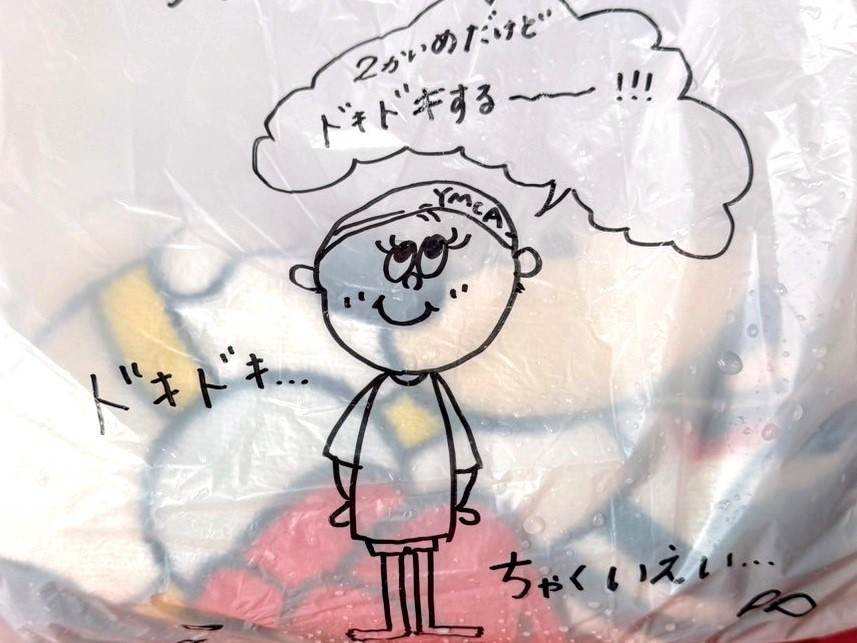 2かいめだけど
ドキドキするーー!!!
YMCA
ドキドキ...
ちゃくいえい...